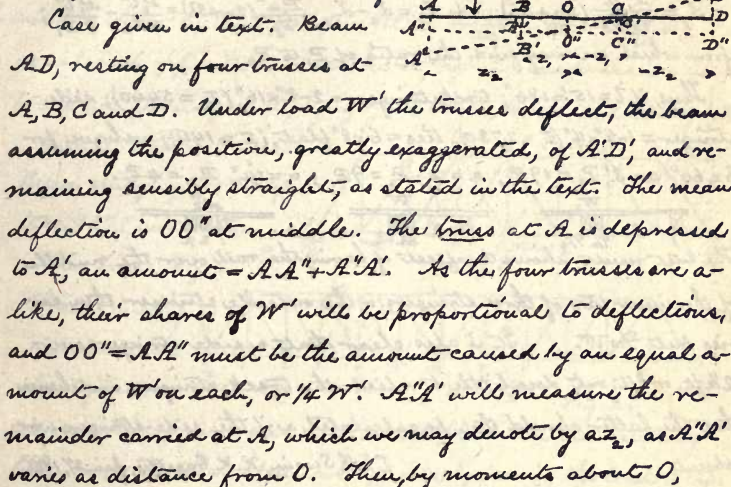 A B O C D
A" B" C' D"
A' B' O" C"
z₂ z₁ z₁ z₂
Case given in text. Beam
AD, resting on four trusses at
A, B, C and D. Under load W' the trusses deflect, the beam
assuming the position, greatly exaggerated, of A'D', and re-
maining sensibly straight, as stated in the text. The mean
deflection is OO" at middle. The truss at A is depressed
to A', an amount = AA" + A"A'. As the four trusses are a-
like, their shares of W' will be proportional to deflections,
and OO" = AA" must be the amount caused by an equal a-
mount of W' on each, or 1/4 W'. A"A' will measure the re-
mainder carried at A, which we may denote by az₂, as A"A'
varies as distance from O. Then, by moments about O,